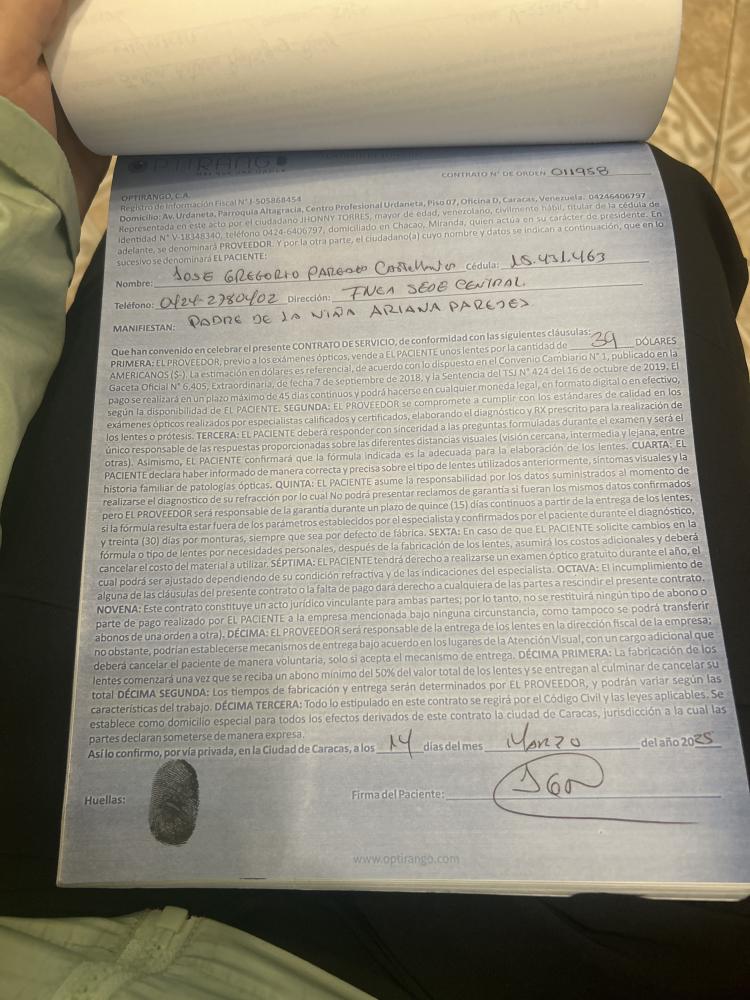 OPTIRANGO
CONTRATO N° DE ORDEN 011958
OPTIRANGO, C.A.
Registro de Información Fiscal N° J-505868454
Domicilio: Av. Urdaneta, Parroquia Altagracia, Centro Profesional Urdaneta, Piso 07, Oficina D, Caracas, Venezuela. 04246406797
Representada en este acto por el ciudadano JHONNY TORRES, mayor de edad, venezolano, civilmente hábil, titular de la cédula de
Identidad N° V-18348340, teléfono 0424-6406797, domiciliado en Chacao, Miranda, quien actua en su carácter de presidente. En
adelante, se denominará PROVEEDOR. Y por la otra parte, el ciudadano(a) cuyo nombre y datos se indican a continuación, que en lo
sucesivo se denominará EL PACIENTE:
Nombre: JOSE GREGORIO PAREDES Castellanos Cédula: 15.431.463
Teléfono: 0424-2780402 Dirección: SEDE CENTRAL
MANIFIESTAN: PADRE DE LA NIÑA ARIANA PAREDES
Que han convenido en celebrar el presente CONTRATO DE SERVICIO, de conformidad con las siguientes cláusulas:
PRIMERA: EL PROVEEDOR, previo a los exámenes ópticos, vende a EL PACIENTE unos lentes por la cantidad de 39 DÓLARES
AMERICANOS ($-). La estimación en dólares es referencial, de acuerdo con lo dispuesto en el Convenio Cambiario N° 1, publicado en la
Gaceta Oficial N° 6.405, Extraordinaria, de fecha 7 de septiembre de 2018, y la Sentencia del TSJ N° 424 del 16 de octubre de 2019. El
pago se realizará en un plazo máximo de 45 días continuos y podrá hacerse en cualquier moneda legal, en formato digital o en efectivo,
según la disponibilidad de EL PACIENTE. SEGUNDA: EL PROVEEDOR se compromete a cumplir con los estándares de calidad en los
exámenes ópticos realizados por especialistas calificados y certificados, elaborando el diagnóstico y RX prescrito para la realización de
los lentes o prótesis. TERCERA: EL PACIENTE deberá responder con sinceridad a las preguntas formuladas durante el examen y será el
único responsable de las respuestas proporcionadas sobre las diferentes distancias visuales (visión cercana, intermedia y lejana, entre
otras). Asimismo, EL PACIENTE confirmará que la fórmula indicada es la adecuada para la elaboración de los lentes. CUARTA: EL
PACIENTE declara haber informado de manera correcta y precisa sobre el tipo de lentes utilizados anteriormente, síntomas visuales y la
historia familiar de patologías ópticas. QUINTA: EL PACIENTE asume la responsabilidad por los datos suministrados al momento de
realizarse el diagnostico de su refracción por lo cual No podrá presentar reclamos de garantía si fueran los mismos datos confirmados
pero EL PROVEEDOR será responsable de la garantía durante un plazo de quince (15) días continuos a partir de la entrega de los lentes,
si la fórmula resulta estar fuera de los parámetros establecidos por el especialista y confirmados por el paciente durante el diagnóstico,
y treinta (30) días por monturas, siempre que sea por defecto de fábrica. SEXTA: En caso de que EL PACIENTE solicite cambios en la
fórmula o tipo de lentes por necesidades personales, después de la fabricación de los lentes, asumirá los costos adicionales y deberá
cancelar el costo del material a utilizar. SÉPTIMA: EL PACIENTE tendrá derecho a realizarse un examen óptico gratuito durante el año, el
cual podrá ser ajustado dependiendo de su condición refractiva y de las indicaciones del especialista. OCTAVA: El incumplimiento de
alguna de las cláusulas del presente contrato o la falta de pago dará derecho a cualquiera de las partes a rescindir el presente contrato.
NOVENA: Este contrato constituye un acto jurídico vinculante para ambas partes; por lo tanto, no se restituirá ningún tipo de abono o
parte de pago realizado por EL PACIENTE a la empresa mencionada bajo ninguna circunstancia, como tampoco se podrá transferir
abonos de una orden a otra). DÉCIMA: EL PROVEEDOR será responsable de la entrega de los lentes en la dirección fiscal de la empresa;
no obstante, podrían establecerse mecanismos de entrega bajo acuerdo en los lugares de la Atención Visual, con un cargo adicional que
deberá cancelar el paciente de manera voluntaria, solo si acepta el mecanismo de entrega. DÉCIMA PRIMERA: La fabricación de los
lentes comenzará una vez que se reciba un abono mínimo del 50% del valor total de los lentes y se entregan al culminar de cancelar su
total DÉCIMA SEGUNDA: Los tiempos de fabricación y entrega serán determinados por EL PROVEEDOR, y podrán variar según las
características del trabajo. DÉCIMA TERCERA: Todo lo estipulado en este contrato se regirá por el Código Civil y las leyes aplicables. Se
establece como domicilio especial para todos los efectos derivados de este contrato la ciudad de Caracas, jurisdicción a la cual las
partes declaran someterse de manera expresa.
Así lo confirmo, por vía privada, en la Ciudad de Caracas, a los 14 días del mes Marzo del año 2025
Huellas:
Firma del Paciente:
www.optirango.com